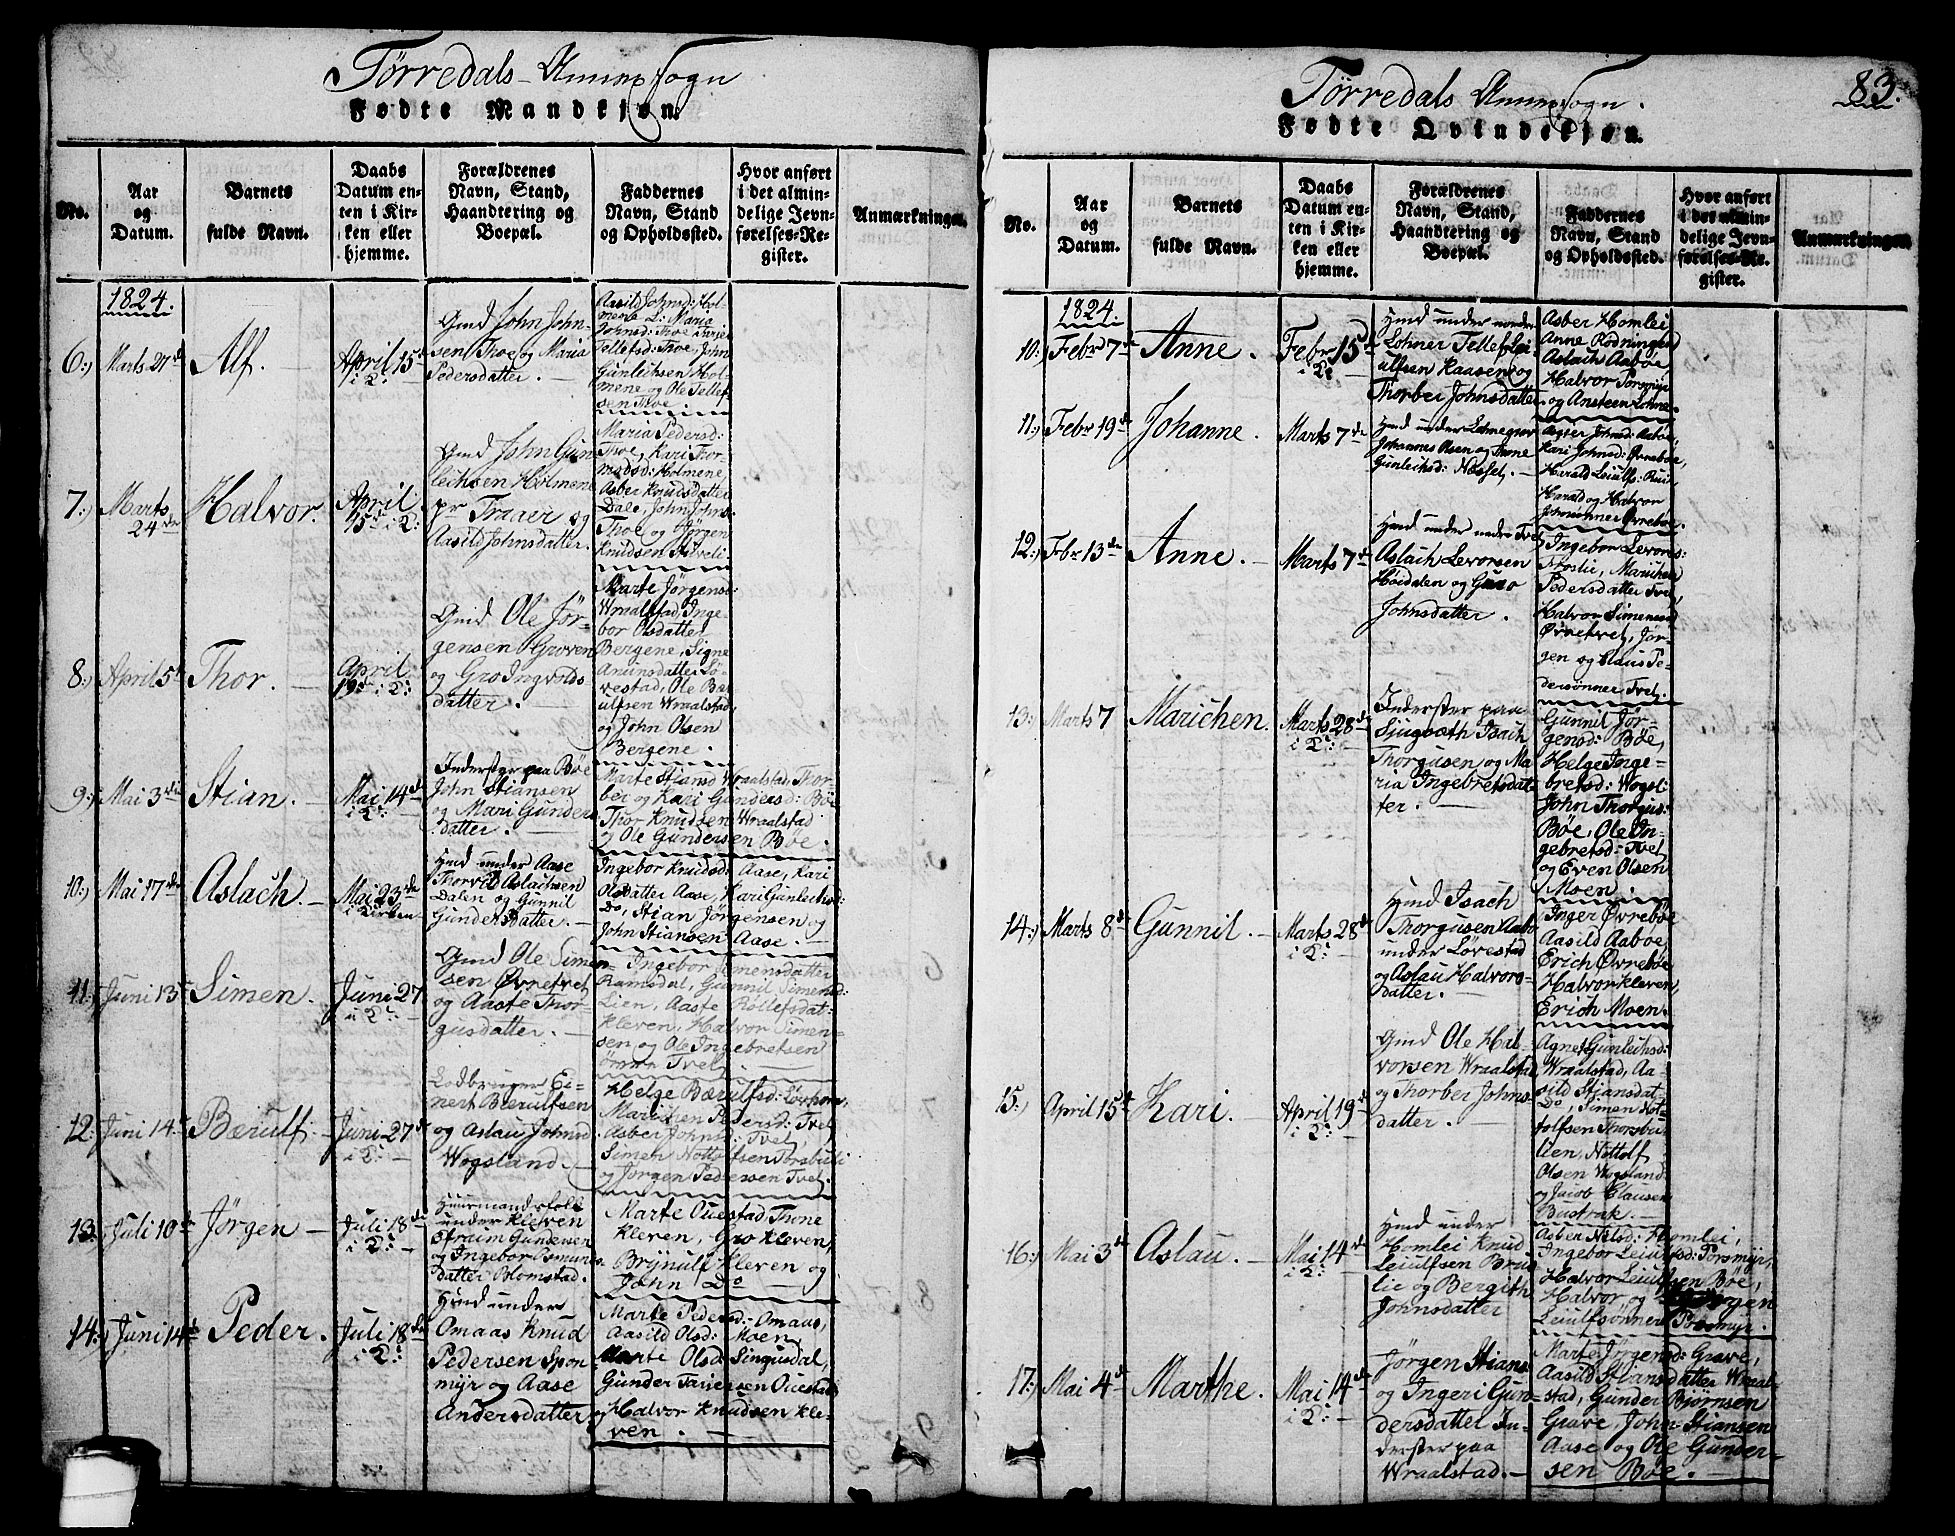 Tørredals Annex Sogn
Fødte Mandkjøn.
No.
Aar
og
Datum.
Barnets
fulde Navn.
Daabs
Datum en-
ten i Kir-
ken eller
hjemme.
Forældrenes
Navn, Stand,
Haandtering og
Boepæl.
Faddernes
Navn, Stand
og Opholdssted.
Hvor anført
i det almin-
delige Jevn-
førelses-Re-
gister.
Anmærkninger.
1824.
6:)
Alf.
April 15de
Gmd John John-
sen Thoe og Maria
Pedersdatter.
Gunleichsen Hol-
mene og Ole Tellef-
sen Thoe.
7:)
Marts
24de
Halvor.
April
15de i K:
Gmd John Gun-
leichsen Holmene
og
Aasild Johnsdatter.
Maria Pedersd:
Thoe, Kari Thor-
modsd: Holmene
Asber Knudsdatter
Dale, John Johns:
Thoe og Jørgen
Knudsen
8:)
April 5te
Thor.
April
19de i K:
Gmd Ole Jør-
gensen Groven
og Gro Ingvolds
datter.
Marte Jørgensd:
Wraalstad, Inge-
bor Olsdatter
Bergene, Signe
Olsen Wraalstad,
og John Olsen
Bergene.
9:)
Mai 3die
Stian.
Mai 14de
Inderster paa Bøe
John Stiansen
og Mari Gunders
datter.
Marte Stiansd Wraalstad, Thor-
ber og Kari Gundersd: Bøe
Thor Knudsen Wraalstad
og Ole Gundersen Bøe.
10:)
Mai 17de
Aslach.
Mai 23de
i Kirken
Hmd under Aase
Aslachsen
Dalen og Gunnil
Gundersdatter.
Ingebor Knudsd: Aase, Kari
Olsdatter Aase, Kari Gunleichsd:
Do, Stian Jørgensen og
John Stiansen Aase.
11:)
Juni 13de
Simen.
Juni 27
Gmd Ole Simen-
sen Ørnetvet
og Aaste Thor-
gusdatter.
Ingebor Simensdatter
Ramsdal, Gunnil Simensd:
Lien, Aaste
Kleven, Halvor Simen-
sen og Ole Ingebretsen
Tvet.
12:)
Juni 14de
Bærulf.
Juni 27de
i K:
Lodbruger Ei-
nert Bærulfsen
og Aslau Johnsd
Wogsland.
Helge Bærulfsd:
Marichen Pedersd: Tvet,
Asber Johnsd: Tvet,
Simen Nottolfsen Torsbuli
og Jørgen Pedersen Tvet.
13:)
Juli 10de
Jørgen
Juli 18de
i K:
Huusmandsfolk
under Kleven
Efraim Gundersen
og Ingebor Osmunds
datter Blomstad.
Marte Ouestad, Thone
Kleven, Gro Kleven,
Brynulf Kleven og
John Do
14:)
Juni 14de
Peder.
Juli 18de
i K:
Hmd under
Omaas Knud
Pedersen Spon-
myr og Aase
Andersdatter.
Marte Pedersd: Omaas,
Aasild Olsd: Moen,
Marte Olsd Singusdal,
Gunder Tarjersen Ouestad
og Halvor Knudsen Kle-
ven.
Tørredals Annex Sogn.
83.
Fødte Qvindekjøn.
No.
Aar
og
Datum.
Barnets
fulde Navn.
Daabs
Datum en-
ten i Kir-
ken eller
hjemme.
Forældrenes
Navn, Stand,
Haandtering og
Boepæl.
Faddernes
Navn, Stand
og Opholdssted.
Hvor anført
i det almin-
delige Jevn-
førelses-Re-
gister.
Anmærkninger.
1824.
10:)
Febr 7de
Anne.
Febr 15de
i K:
Hmd under nordre
Lohner Tellef Lei-
ulfsen Kaasen og
Thorber Johnsdatter.
Asber Homlei
Anne Rødningen
Aslach Aabøe,
Halvor Porsmyr
og Ansteen Lohne.
11:)
Febr 19de
Johanne.
Marts 7de
Johannes Olsen og Anne
Gunleichsd: Næsset.
Kari Johnsd: Øvrebøe,
Harald Leiulfs:
Harald og Halvor
Øvrebøe.
12:)
Febr 13de
Anne.
Marts 7de
Hmd under nedre Tvet
Aslach Levorsen
Høidalen og Guro
Johnsdatter.
Ingebor Levors:
Marichen
Pedersdatter Tvet,
Halvor Simensen
Ørnetvet, Jør-
gen og Claus Pe-
dersønner Tvet.
13:)
Marts 7
Marichen.
Marts 28de
i K:
Inderster paa
Isach
Thorgusen og Ma-
ria Ingebretsdat-
ter.
Gunnil Jør-
gensd: Bøe,
Helge Inge-
bretsd: Wogsl:
John Thorgus:
Bøe, Ole In-
gebretsd: Tvet
og Even Olsen
Moen.
14:)
Marts 8de
Gunnil.
Marts 28de
i K:
Hmd Isach
Thorgusen Aabø
under Løvestad
og Aslau Halvors-
datter.
Inger Øvrebøe
Aasild Aabøe,
Erich Øvrebøe,
Halvor Kleven,
Erich Moen.
15:)
April 15de
Kari.
April 19de
i K:
Gmd Ole Hal-
vorsen Wraalstad
og Thorber Johns-
datter.
Agnet Gunleichsd:
Wraalstad, Aa-
sild Stiansdat-
Do, Simen Not-
tolfsen Thorsbu-
lien, Nottolf
Olsen Wogsland
og Jacob Clausen
Bustrak.
16:)
Mai 3de
Aslau.
Mai 14de
i K:
Hmd under
Homlei Knud
Leiulfsen Brud-
lie og Bergith
Johnsdatter
Asber Nilsd: Homlei,
Ingebor Leiulfsd: Porsmyr,
Halvor Leiulfsen Bøe,
Halvor og Jørgen
Leiulfsønner Porsmyr.
17:)
Mai 4de
Marthe.
Mai 14de
i K:
Jørgen Stians-
og Ingeri Gun-
dersdatter In-
derster paa
Wraalstad.
Marte Jørgensd: Grave,
Aasild Stiansdatter Wraal-
stad, Gunder Bjørnsen
Grave, John Stiansen
Aase og Ole Gunder-
sen Bøe.